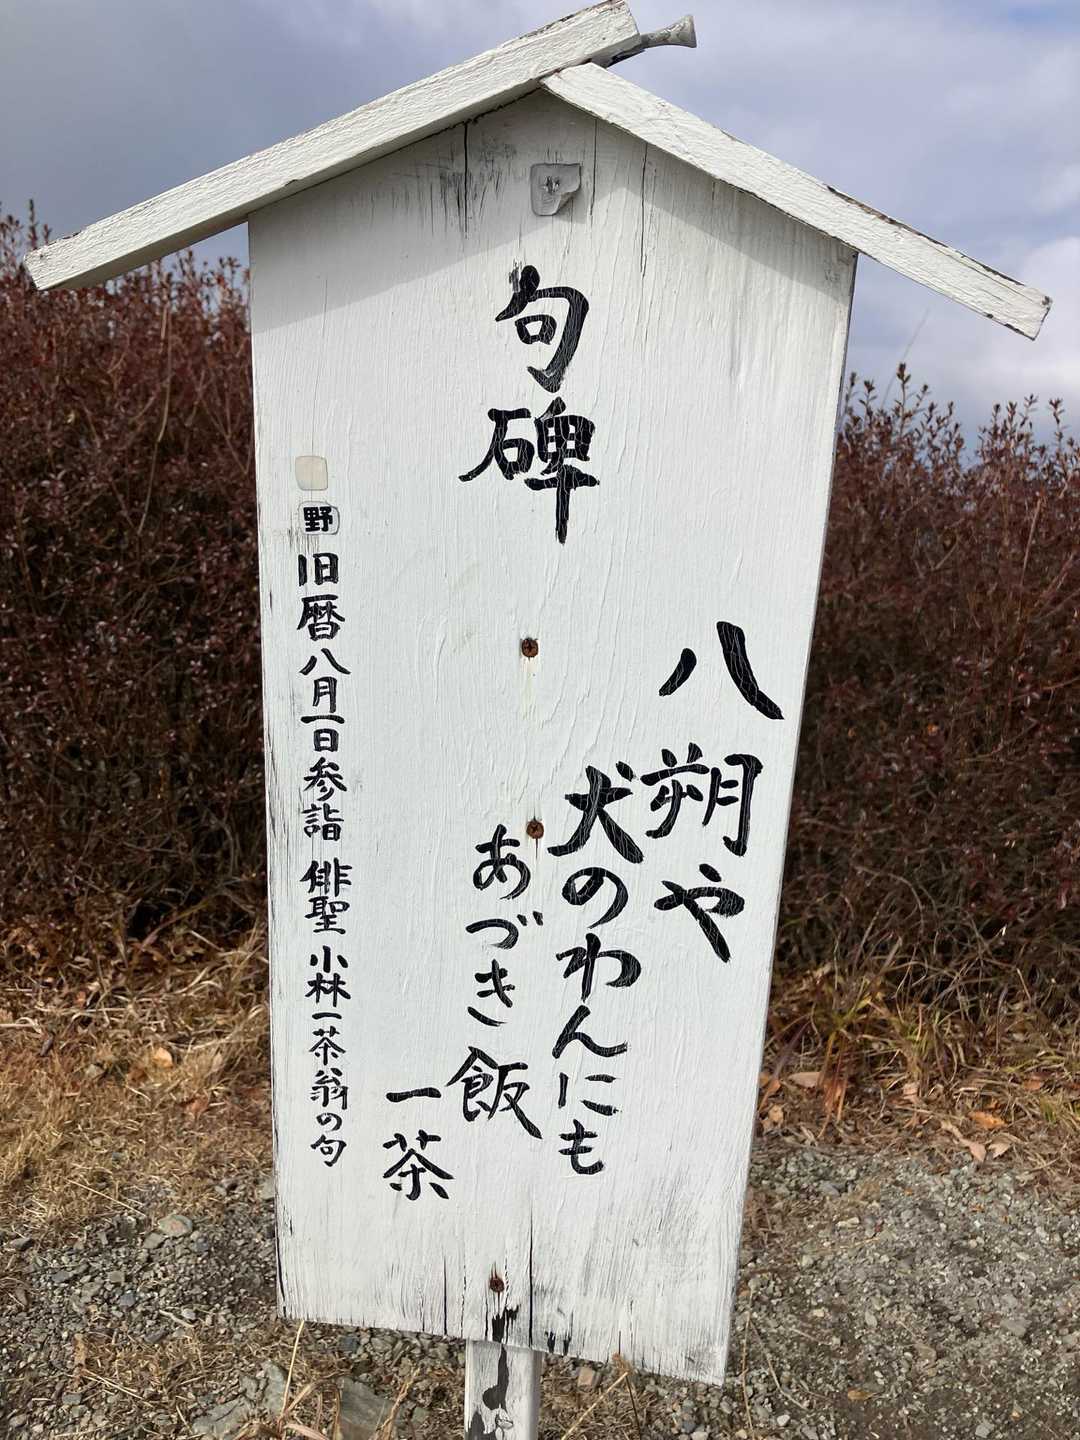 句碑
八朔や
犬のわんにも
あづき飯
一茶
野 旧暦八月一日参詣 俳聖 小林一茶翁の句